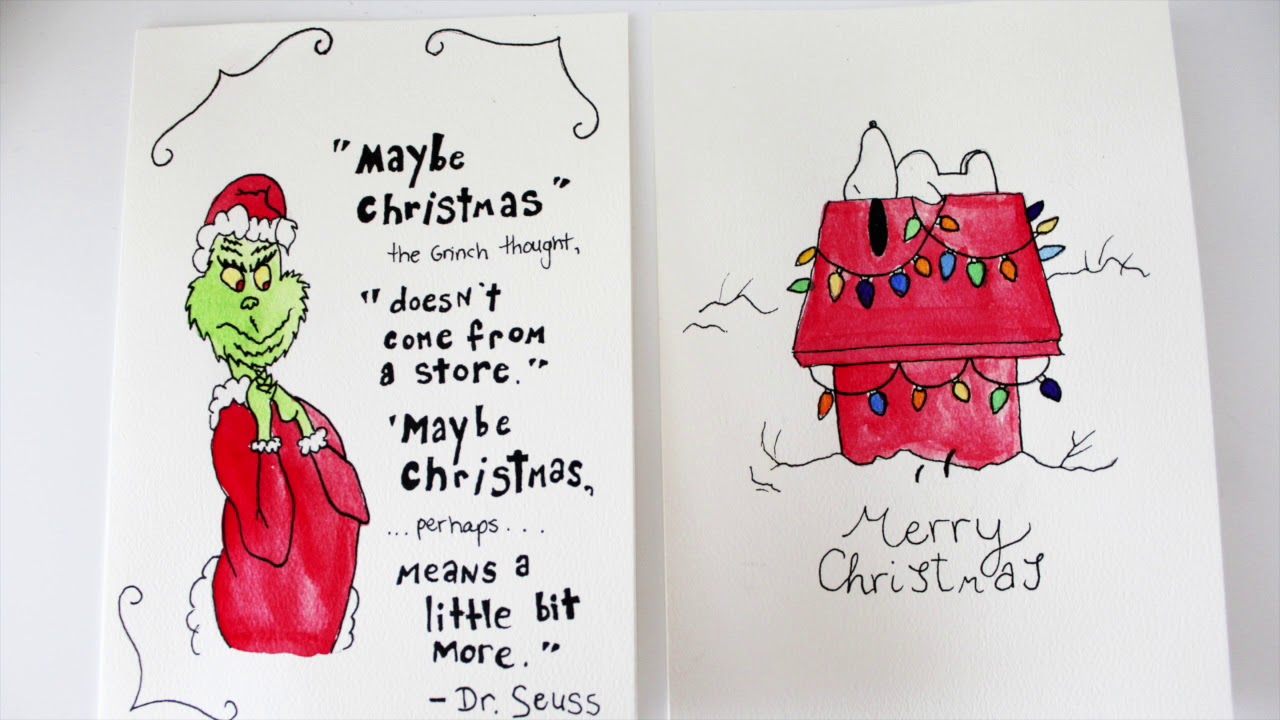 "Maybe
christmas"
the Grinch thought,
"doesn't
come from
a store."
'Maybe
christmas,
...perhaps...
means a
little bit
more."
- Dr. Seuss
Merry
Christmas